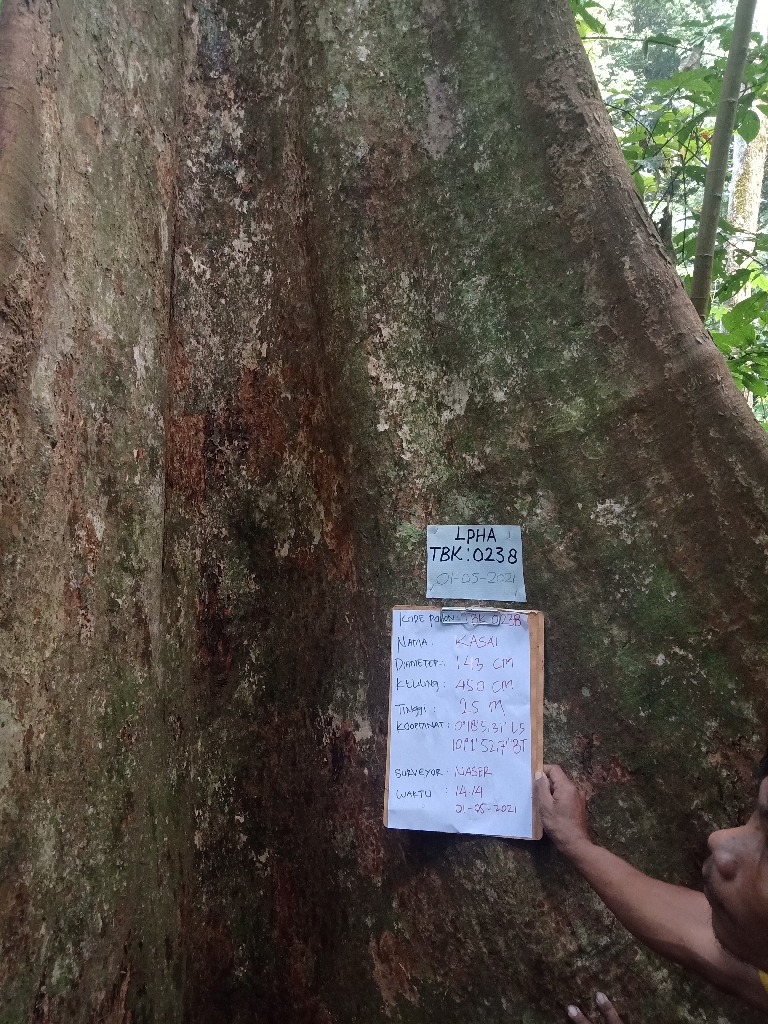 LPHA
TBK:0238
01-05-2021
KODE POHON: TBK 0238
NAMA : KASAI
DIAMETER: 143 CM
KELILING : 450 CM
TINGGI : 25 M
KOORDINAT : 0°18'5,31" LS
101°1'52,7" BT
SURVEYOR : NASER
WAKTU : 14.14
01-05-2021